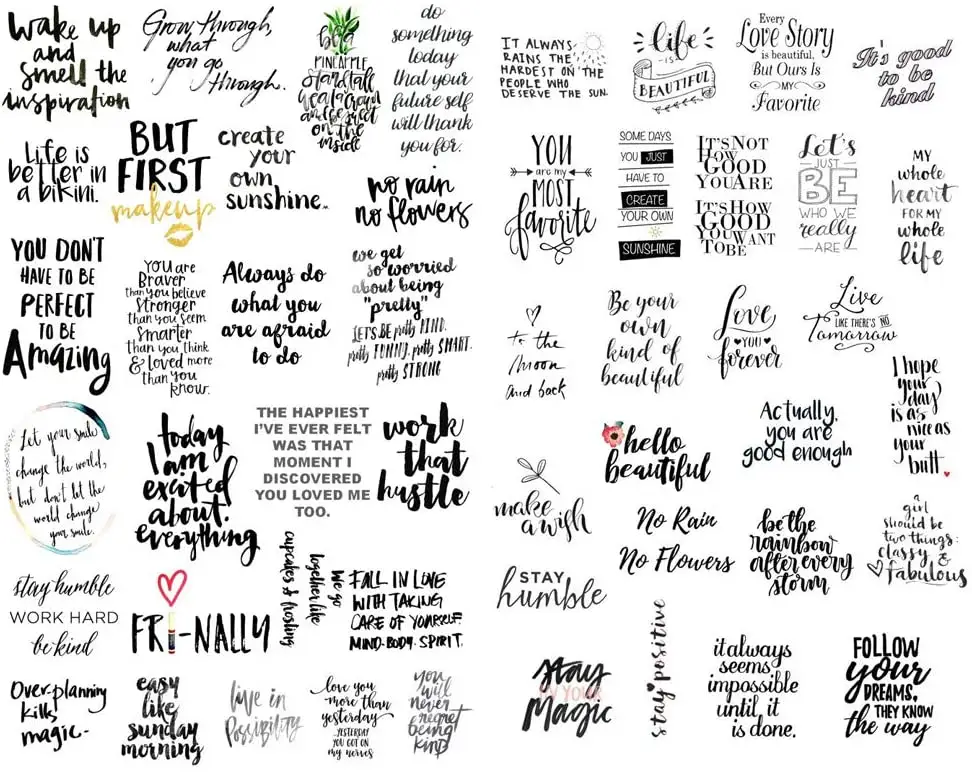 wake up
and
smell the
inspiration
Grow through,
what
you go
through.
be a
PINEAPPLE
stand tall
wear a crown
and be sweet
on the
inside
do
something
today
that your
future self
will thank
you for.
Life is
better in
a bikini.
BUT
FIRST
makeup
create
your
own
sunshine.
no rain
no flowers
YOU DON'T
HAVE TO BE
PERFECT
TO BE
Amazing
YOU are
Braver
than you believe
Stronger
than you seem
Smarter
than you think
& loved more
than you
know.
Always do
what you
are afraid
to do
we get
so worried
about being
"pretty"
LET'S BE pretty KIND.
pretty FUNNY. pretty SMART.
pretty STRONG
Let your smile
change the world,
but don't let the
world change
your smile.
today
I am
excited
about.
everything
THE HAPPIEST
I'VE EVER FELT
WAS THAT
MOMENT I
DISCOVERED
YOU LOVED ME
TOO.
work
that
hustle
stay humble
WORK HARD
be kind
FRI-NALLY
We go
together like
cupcakes & frosting
FALL IN LOVE
WITH TAKING
CARE OF YOURSELF
MIND. BODY. SPIRIT.
Over-planning
kills
magic-
easy
like
sunday
morning
live in
Possibility
love you
more than
yesterday
YESTERDAY
YOU GOT ON
my nerves
you
will
never
regret
being
kind
IT ALWAYS
RAINS THE
HARDEST ON THE
PEOPLE WHO
DESERVE THE SUN.
life
IS
BEAUTIFUL
Every
LOVE STORY
is beautiful,
BUT OURS IS
MY
Favorite
It's good
to be
kind
YOU
are my
MOST
favorite
SOME DAYS
YOU JUST
HAVE TO
CREATE
YOUR OWN
SUNSHINE
IT'S NOT
HOW
GOOD
YOU ARE
IT'S HOW
GOOD
YOU WANT
TO BE
Let's
JUST
BE
WHO WE
really
ARE
MY
whole
heart
FOR MY
whole
life
to the
moon
and back
Be your
own
kind of
beautiful
Love
YOU
forever
Live
LIKE THERE'S NO
Tomorrow
I hope
your
day
is as
nice as
your
butt.
hello
beautiful
Actually,
you are
good enough
make
a wish
No Rain
No Flowers
be the
rainbow
after every
storm
a
girl
should be
two things:
classy &
fabulous
STAY
humble
stay positive
stay
IN YOUR
Magic
it always
seems
impossible
until it
is done.
FOLLOW
your
DREAMS,
THEY KNOW
the way